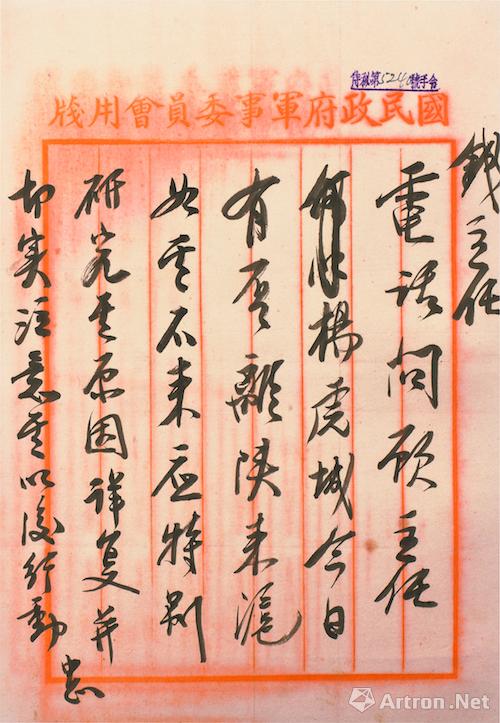 侍秘第5240號手令
國民政府軍事委員會用牋
錢主任
電話問顧主任
楊虎城今日
有否離陝來滬
如其不来应特別
研究其原因詳复并
切实注意其以後行動
Artron.Net